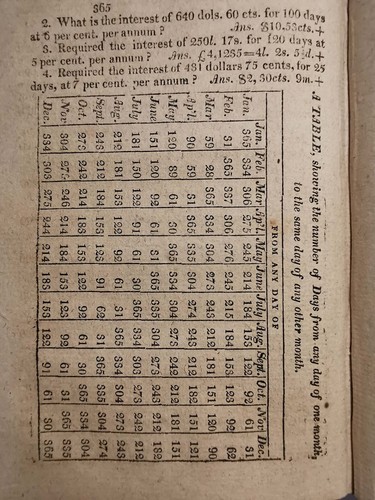 365
2. What is the interest of 640 dols. 60 cts. for 100 days
at 6 per cent. per annum? Ans. $10.53cts.+
3. Required the interest of 250l. 17s. for 120 days at
5 per cent. per annum? Ans. £4,1235=4l. 2s. 5½d.+
4. Required the interest of 481 dollars 75 cents, for 25
days, at 7 per cent. per annum? Ans. $2, 30cts. 9m.+
A TABLE, shewing the number of Days from any day of one month,
to the same day of any other month.
FROM ANY DAY OF
Jan. Feb. Mar Ap'l. May June July Aug. Sept. Oct. Nov Dec.
Jan. 365 334 306 275 245 214 184 153 122 92 61 31
Feb. 31 365 337 306 276 245 215 184 153 123 92 62
Mar 59 28 365 334 304 273 243 212 181 151 120 90
Ap'l. 90 59 31 365 335 304 274 243 212 182 151 121
May 120 89 61 30 365 334 304 273 242 212 181 151
June 151 120 92 61 31 365 335 304 273 243 212 182
July 181 150 122 91 61 30 365 334 303 273 242 212
Aug. 212 181 153 122 92 61 31 365 334 304 273 243
Sept. 243 212 184 153 123 92 62 31 365 335 304 274
Oct. 273 242 214 183 153 122 92 61 30 365 334 304
Nov 304 273 245 214 184 153 123 92 61 31 365 335
Dec. 334 303 275 244 214 183 153 122 91 61 30 365